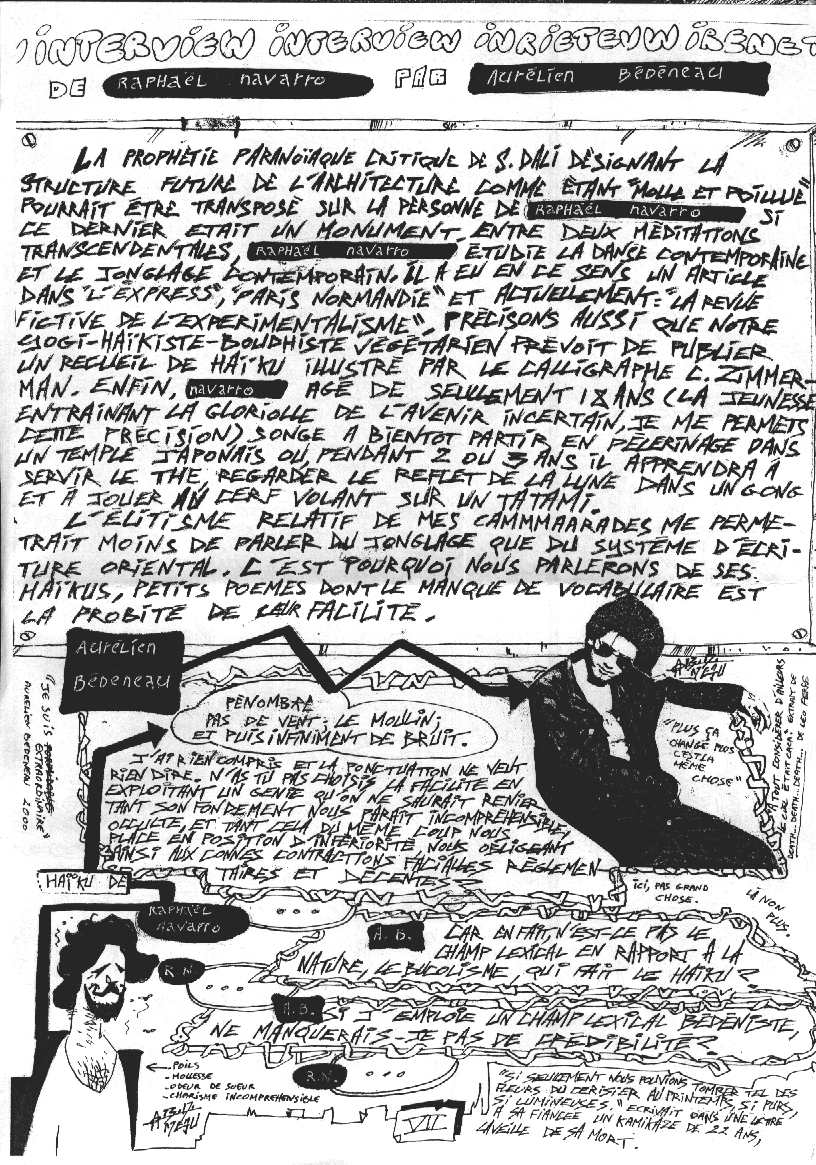 INTERVIEW INTERVIEW INRIETEVUW IRENET
DE RAPHAËL NAVARRO PAR AURÉLIEN BÉDÉNEAU
LA PROPHÉTIE PARANOÏAQUE CRITIQUE DE S. DALI DÉSIGNANT LA
STRUCTURE FUTURE DE L'ARCHITECTURE COMME ÉTANT "MOLLE ET POILLUE"
POURRAIT ÊTRE TRANSPOSÉ SUR LA PERSONNE DE RAPHAËL NAVARRO SI
CE DERNIER ETAIT UN MONUMENT. ENTRE DEUX MÉDITATIONS
TRANSCENDENTALES, RAPHAËL NAVARRO ÉTUDIE LA DANSE CONTEMPORAINE
ET LE JONGLAGE CONTEMPORAIN. IL A EU EN CE SENS UN ARTICLE
DANS "L'EXPRESS", "PARIS NORMANDIE" ET ACTUELLEMENT: "LA REVUE
FICTIVE DE L'EXPERIMENTALISME", PRÉCISONS AUSSI QUE NOTRE
YOGI-HAÏKISTE-BOUDHISTE VÉGÉTARIEN PRÉVOIT DE PUBLIER
UN RECUEIL DE HAÏKU ILLUSTRÉ PAR LE CALLIGRAPHE C. ZIMMER-
MAN. ENFIN, NAVARRO AGÉ DE SEULEMENT 18 ANS (LA JEUNESSE
ENTRAINANT LA GLORIOLLE DE L'AVENIR INCERTAIN, JE ME PERMETS
CETTE PRÉCISION) SONGE A BIENTOT PARTIR EN PÉLERINAGE DANS
UN TEMPLE JAPONAIS OU, PENDANT 2 OU 3 ANS IL APPRENDRA À
SERVIR LE THE, REGARDER LE REFLET DE LA LUNE DANS UN GONG
ET A JOUER AU CERF VOLANT SUR UN TATAMI.
L'ÉLITISME RELATIF DE MES CAMMMAARADES ME PERME-
TRAIT MOINS DE PARLER DU JONGLAGE QUE DU SYSTÈME D'ÉCRI-
TURE ORIENTAL. C'EST POURQUOI NOUS PARLERONS DE SES
HAÏKUS, PETITS POEMES DONT LE MANQUE DE VOCABULAIRE EST
LA PROBITÉ DE LEUR FACILITÉ.
AURÉLIEN
BÉDÉNEAU
"JE SUIS
EXTRAORDINAIRE"
AURELIEN BEDENEAU 2000
PÉNOMBRE
PAS DE VENT; LE MOULIN;
ET PUIS INFINIMENT DE BRUIT.
J'AI RIEN COMPRIS ET LA PONCTUATION NE VEUT
RIEN DIRE. N'AS TU PAS CHOISIS LA FACILITÉ EN
EXPLOITANT UN GENRE QU'ON NE SAURAIT RENIER
TANT SON FONDEMENT NOUS PARAIT INCOMPRÉHENSIBLE,
OCCULTE, ET TANT CELA DU MÊME COUP NOUS
PLACE EN POSITION D'INFÉRIORITÉ, NOUS OBLIGEANT
AINSI AUX CONNES CONTRACTIONS FACIALLES RÉGLEMEN
TAIRES ET DÉCENTES.
"PLUS ÇA
CHANGE PLUS
C'EST LA
MÊME
CHOSE"
A TOUT CONSIDÉRER D'AILLEURS
LE COU ÉTAIT EXTRAIT DE
DEATH... DEATH... DEATH... DE LEO FERRE
ICI, PAS GRAND
CHOSE.
LÀ NON
PLUS.
HAÏKU DE
RAPHAËL
NAVARRO
...
A.B. CAR EN FAIT, N'EST-CE PAS LE
CHAMP LEXICAL EN RAPPORT A LA
NATURE, LE BUCOLISME, QUI FAIT LE HAÏKU?
R.N. ...
A.B. SI J'EMPLOIE UN CHAMP LEXICAL BÉDÉNISTE,
NE MANQUERAIS-JE PAS DE CRÉDIBILITÉ?
R.N. ...
POILS
- MOLLESSE
- ODEUR DE SUEUR
- CHARISME INCOMPRÉHENSIBLE
VII
"SI SEULEMENT NOUS POUVIONS TOMBER TEL DES
FLEURS DU CERISIER AU PRINTEMPS, SI PURS,
SI LUMINEUSES." ECRIVAIT DANS UNE LETTRE
A SA FIANCEE UN KAMIKAZE DE 22 ANS,
LA VEILLE DE SA MORT.